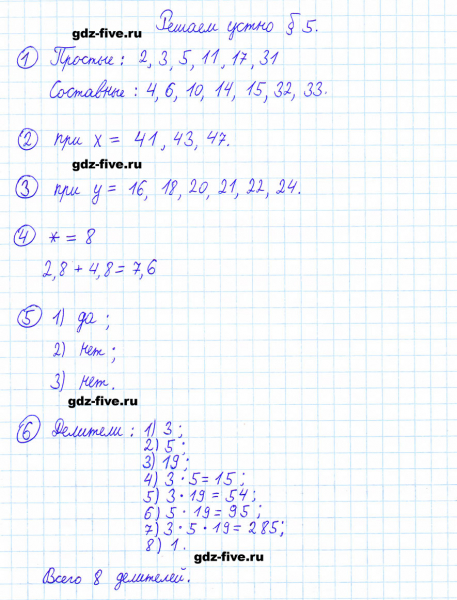 Решаем устно § 5.
gdz-five.ru
1 Простые : 2, 3, 5, 11, 17, 31
Составные : 4, 6, 10, 14, 15, 32, 33.
2 при x = 41, 43, 47.
gdz-five.ru
3 при y = 16, 18, 20, 21, 22, 24.
4 * = 8
2,8 + 4,8 = 7,6
5 1) да ;
2) нет ;
3) нет.
gdz-five.ru
6 Делители : 1) 3 ;
2) 5 ;
3) 19 ;
4) 3 · 5 = 15 ;
5) 3 · 19 = 54 ;
6) 5 · 19 = 95 ;
7) 3 · 5 · 19 = 285 ;
8) 1.
gdz-five.ru
Всего 8 делителей.